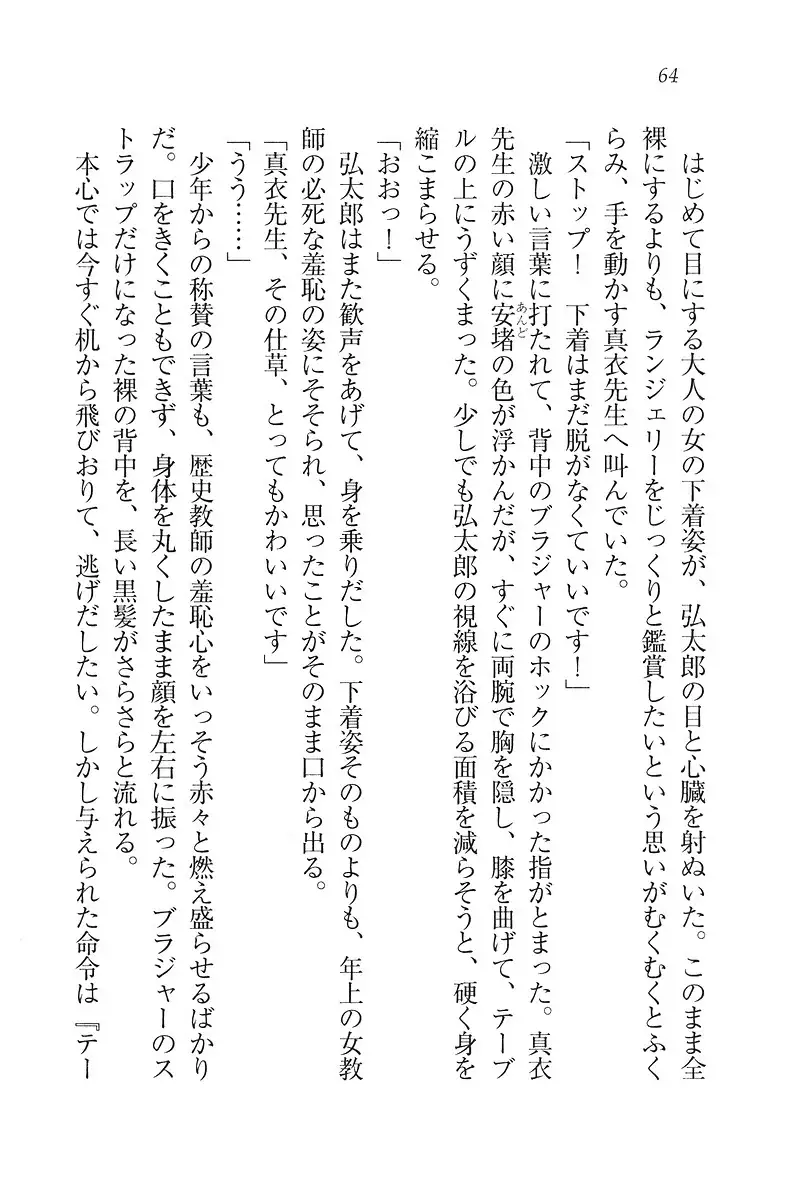 64
はじめて目にする大人の女の下着姿が、弘太郎の目と心臓を射ぬいた。このまま全
裸にするよりも、ランジェリーをじっくりと鑑賞したいという思いがむくむくとふく
らみ、手を動かす真衣先生へ叫んでいた。
「ストップ！　下着はまだ脱がなくていいです！」
激しい言葉に打たれて、背中のブラジャーのホックにかかった指がとまった。真衣
先生の赤い顔に安堵の色が浮かんだが、すぐに両腕で胸を隠し、膝を曲げて、テーブ
ルの上にうずくまった。少しでも弘太郎の視線を浴びる面積を減らそうと、硬く身を
縮こまらせる。
「おおっ！」
弘太郎はまた歓声をあげて、身を乗りだした。下着姿そのものよりも、年上の女教
師の必死な羞恥の姿にそそられ、思ったことがそのまま口から出る。
「真衣先生、その仕草、とってもかわいいです」
「うう……」
少年からの称賛の言葉も、歴史教師の羞恥心をいっそう赤々と燃え盛らせるばかり
だ。口をきくこともできず、身体を丸くしたまま顔を左右に振った。ブラジャーのス
トラップだけになった裸の背中を、長い黒髪がさらさらと流れる。
本心では今すぐ机から飛びおりて、逃げだしたい。しかし与えられた命令は『テー